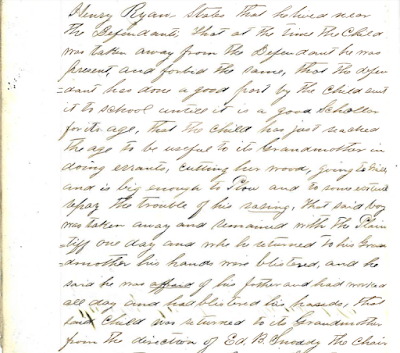 Henry Ryan States that he lived near
the Defendant that at the time the Child
was taken away from the Defendant he was
present, and forbid the same, that the defen
-dant has done a good part by the Child sent
it to school until it is a good Scholar
for its age, that the child has just reached
the age to be useful to its Grandmother in
doing errants, cutting her wood, going to
and is big enough to Plow and to some extent
repay the trouble of his raising, that said boy
was taken away and remained with the Plain
-tiff one day and who he returned to his Gran
-dmother his hands were blistered, and he
said he was afraid of his father and had worked
all day and had blistered his hands, that
said child was returned to its Grandmother
from the direction of Ed. B. the Chair